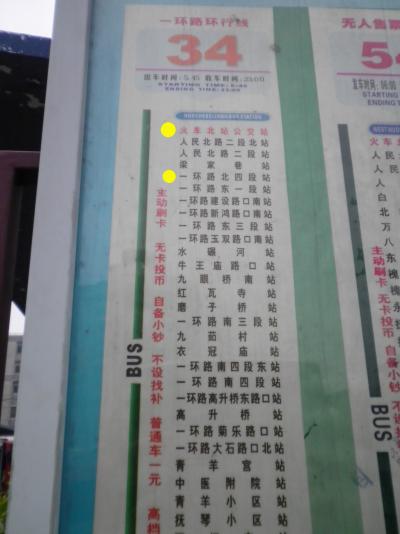 一环路环行线
34
出车时间:5:45 收车时间:23:00
STARTING TIME: 5:45
ENDING TIME: 23:00
火车北站公交站
人民北路二段北站
人民北路二段站
梁家巷站
一环路北四段站
一环路东一段站
一环路建设路口南站
一环路新鸿路口南站
一环路东三段站
一环路玉双路口南站
水碾河站
牛王庙路口站
九眼桥南站
红瓦寺站
磨子桥站
一环路南三段站
九茹村站
衣冠庙站
一环路南四段东站
一环路南四段站
一环路高升桥东路口站
高升桥站
一环路菊乐路口站
一环路大石路口北站
青羊宫站
中医附院站
青羊小区站
抚琴小区站
主动刷卡 无卡投币 自备小钞 不设找补 普通车一元 高档
BUS
无人售票
5
发车时间:06:00
STARTING
ENDING T
人
人
人
白
万
八
东
槐
槐
永
主动刷卡 无卡投币 自备小钞 不设找
BUS